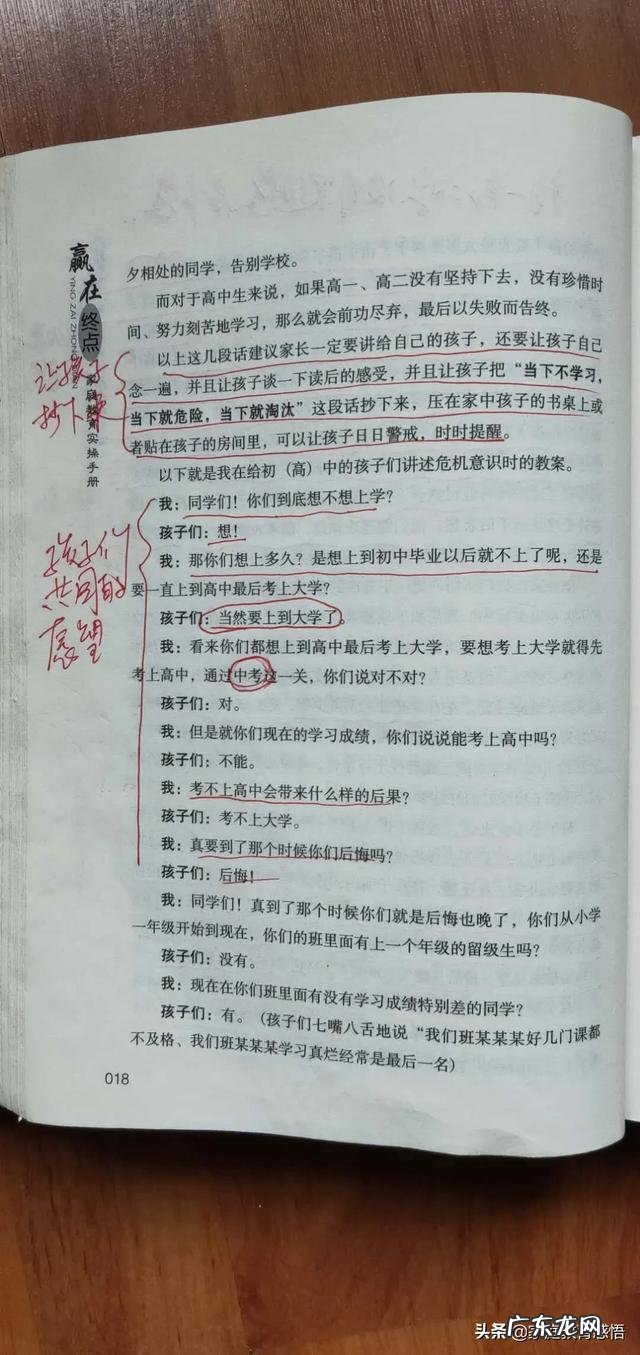 赢在终点
YING ZAI ZHONG DIAN
家庭教育实操手册
夕相处的同学，告别学校。
而对于高中生来说，如果高一、高二没有坚持下去，没有珍惜时
间、努力刻苦地学习，那么就会前功尽弃，最后以失败而告终。
以上这几段话建议家长一定要讲给自己的孩子，还要让孩子自己
念一遍，并且让孩子谈一下读后的感受，并且让孩子把“当下不学习，
当下就危险，当下就淘汰”这段话抄下来，压在家中孩子的书桌上或
者贴在孩子的房间里，可以让孩子日日警戒，时时提醒。
让孩子
抄下来
以下就是我在给初（高）中的孩子们讲述危机意识时的教案。
我：同学们！你们到底想不想上学？
孩子们：想！
我：那你们想上多久？是想上到初中毕业以后就不上了呢，还是
要一直上到高中最后考上大学？
孩子们：当然要上到大学了。
孩子们
共同的
愿望
我：看来你们都想上到高中最后考上大学，要想考上大学就得先
考上高中，通过中考这一关，你们说对不对？
孩子们：对。
我：但是就你们现在的学习成绩，你们说说能考上高中吗？
孩子们：不能。
我：考不上高中会带来什么样的后果？
孩子们：考不上大学。
我：真要到了那个时候你们后悔吗？
孩子们：后悔！
我：同学们！真到了那个时候你们就是后悔也晚了，你们从小学
一年级开始到现在，你们的班里面有上一个年级的留级生吗？
孩子们：没有。
我：现在在你们班里面有没有学习成绩特别差的同学？
孩子们：有。（孩子们七嘴八舌地说“我们班某某某好几门课都
不及格、我们班某某某学习真烂经常是最后一名）
018
头条@家庭教育感悟
广东龙网